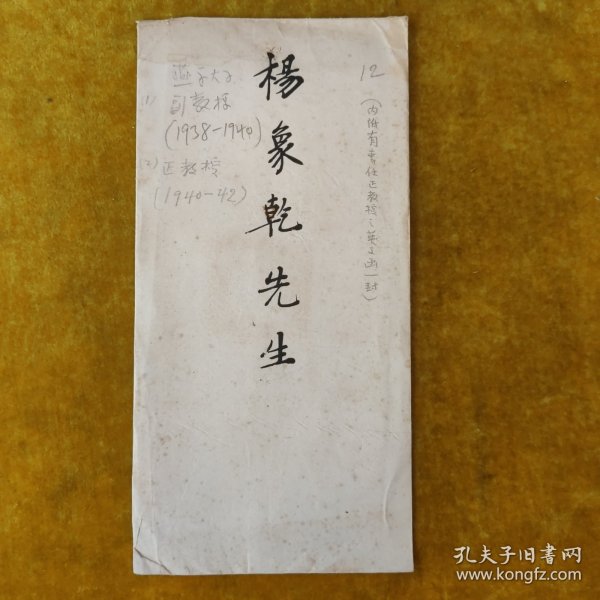 楊象乾先生
12
(内附有專任正教授之英文函一封)
燕京大学
(1) 副教授
(1938-1940)
(2) 正教授
(1940-42)
孔夫子旧书网
www.kongfz.com